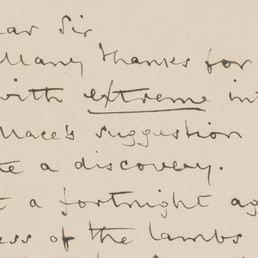 ear Sir
Many thanks for
with extreme in
llace's suggestion
e a discovery.
t a fortnight ag
ess of the lambs